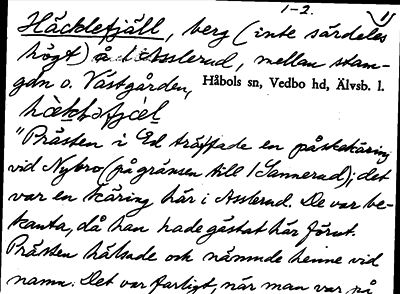 1-2. 1)
Häcklefjäll, berg (inte särdeles
högt) å Asslerud, mellan stam-
gån o. Västgården, Håbols sn, Vedbo hd, Älvsb. l.
"Prästen i Ed träffade en påskakäring
vid Nybro (på gränsen till 1 Sannerud); det
var en käring här i Asslerud. De var be-
kanta, då han hade gästat här förut.
Prästen hälsade och nämnde henne vid
namn. Det var farligt, när man var på